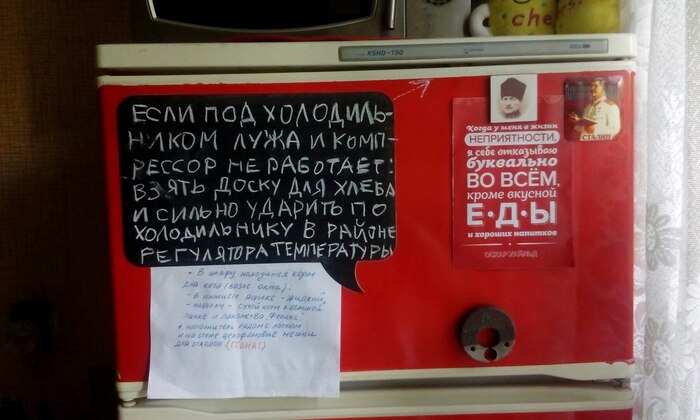 che
KSHD-150
ЕСЛИ ПОД ХОЛОДИЛЬ-
НИКОМ ЛУЖА И КОМП-
РЕССОР НЕ РАБОТАЕТ:
ВЗЯТЬ ДОСКУ ДЛЯ ХЛЕБА
И СИЛЬНО УДАРИТЬ ПО
ХОЛОДИЛЬНИКУ В РАЙОНЕ
РЕГУЛЯТОРА ТЕМПЕРАТУРЫ
СТАЛИН
Когда у меня в жизни
НЕПРИЯТНОСТИ,
я себе отказываю
буквально
ВО ВСЁМ,
кроме вкусной
Е·Д·Ы
и хороших напитков
ОСКАР УАЙЛЬД
• В шкафу находится корм
для кота (возле окна):
- в нижнем ящике - жидкий,
- наверху - сухой корм в большой
пачке и лакомства "Феликс"
• наполнитель рядом с лотком
и на стене целлофановые мешки
для отходов. (ГОВНА!)